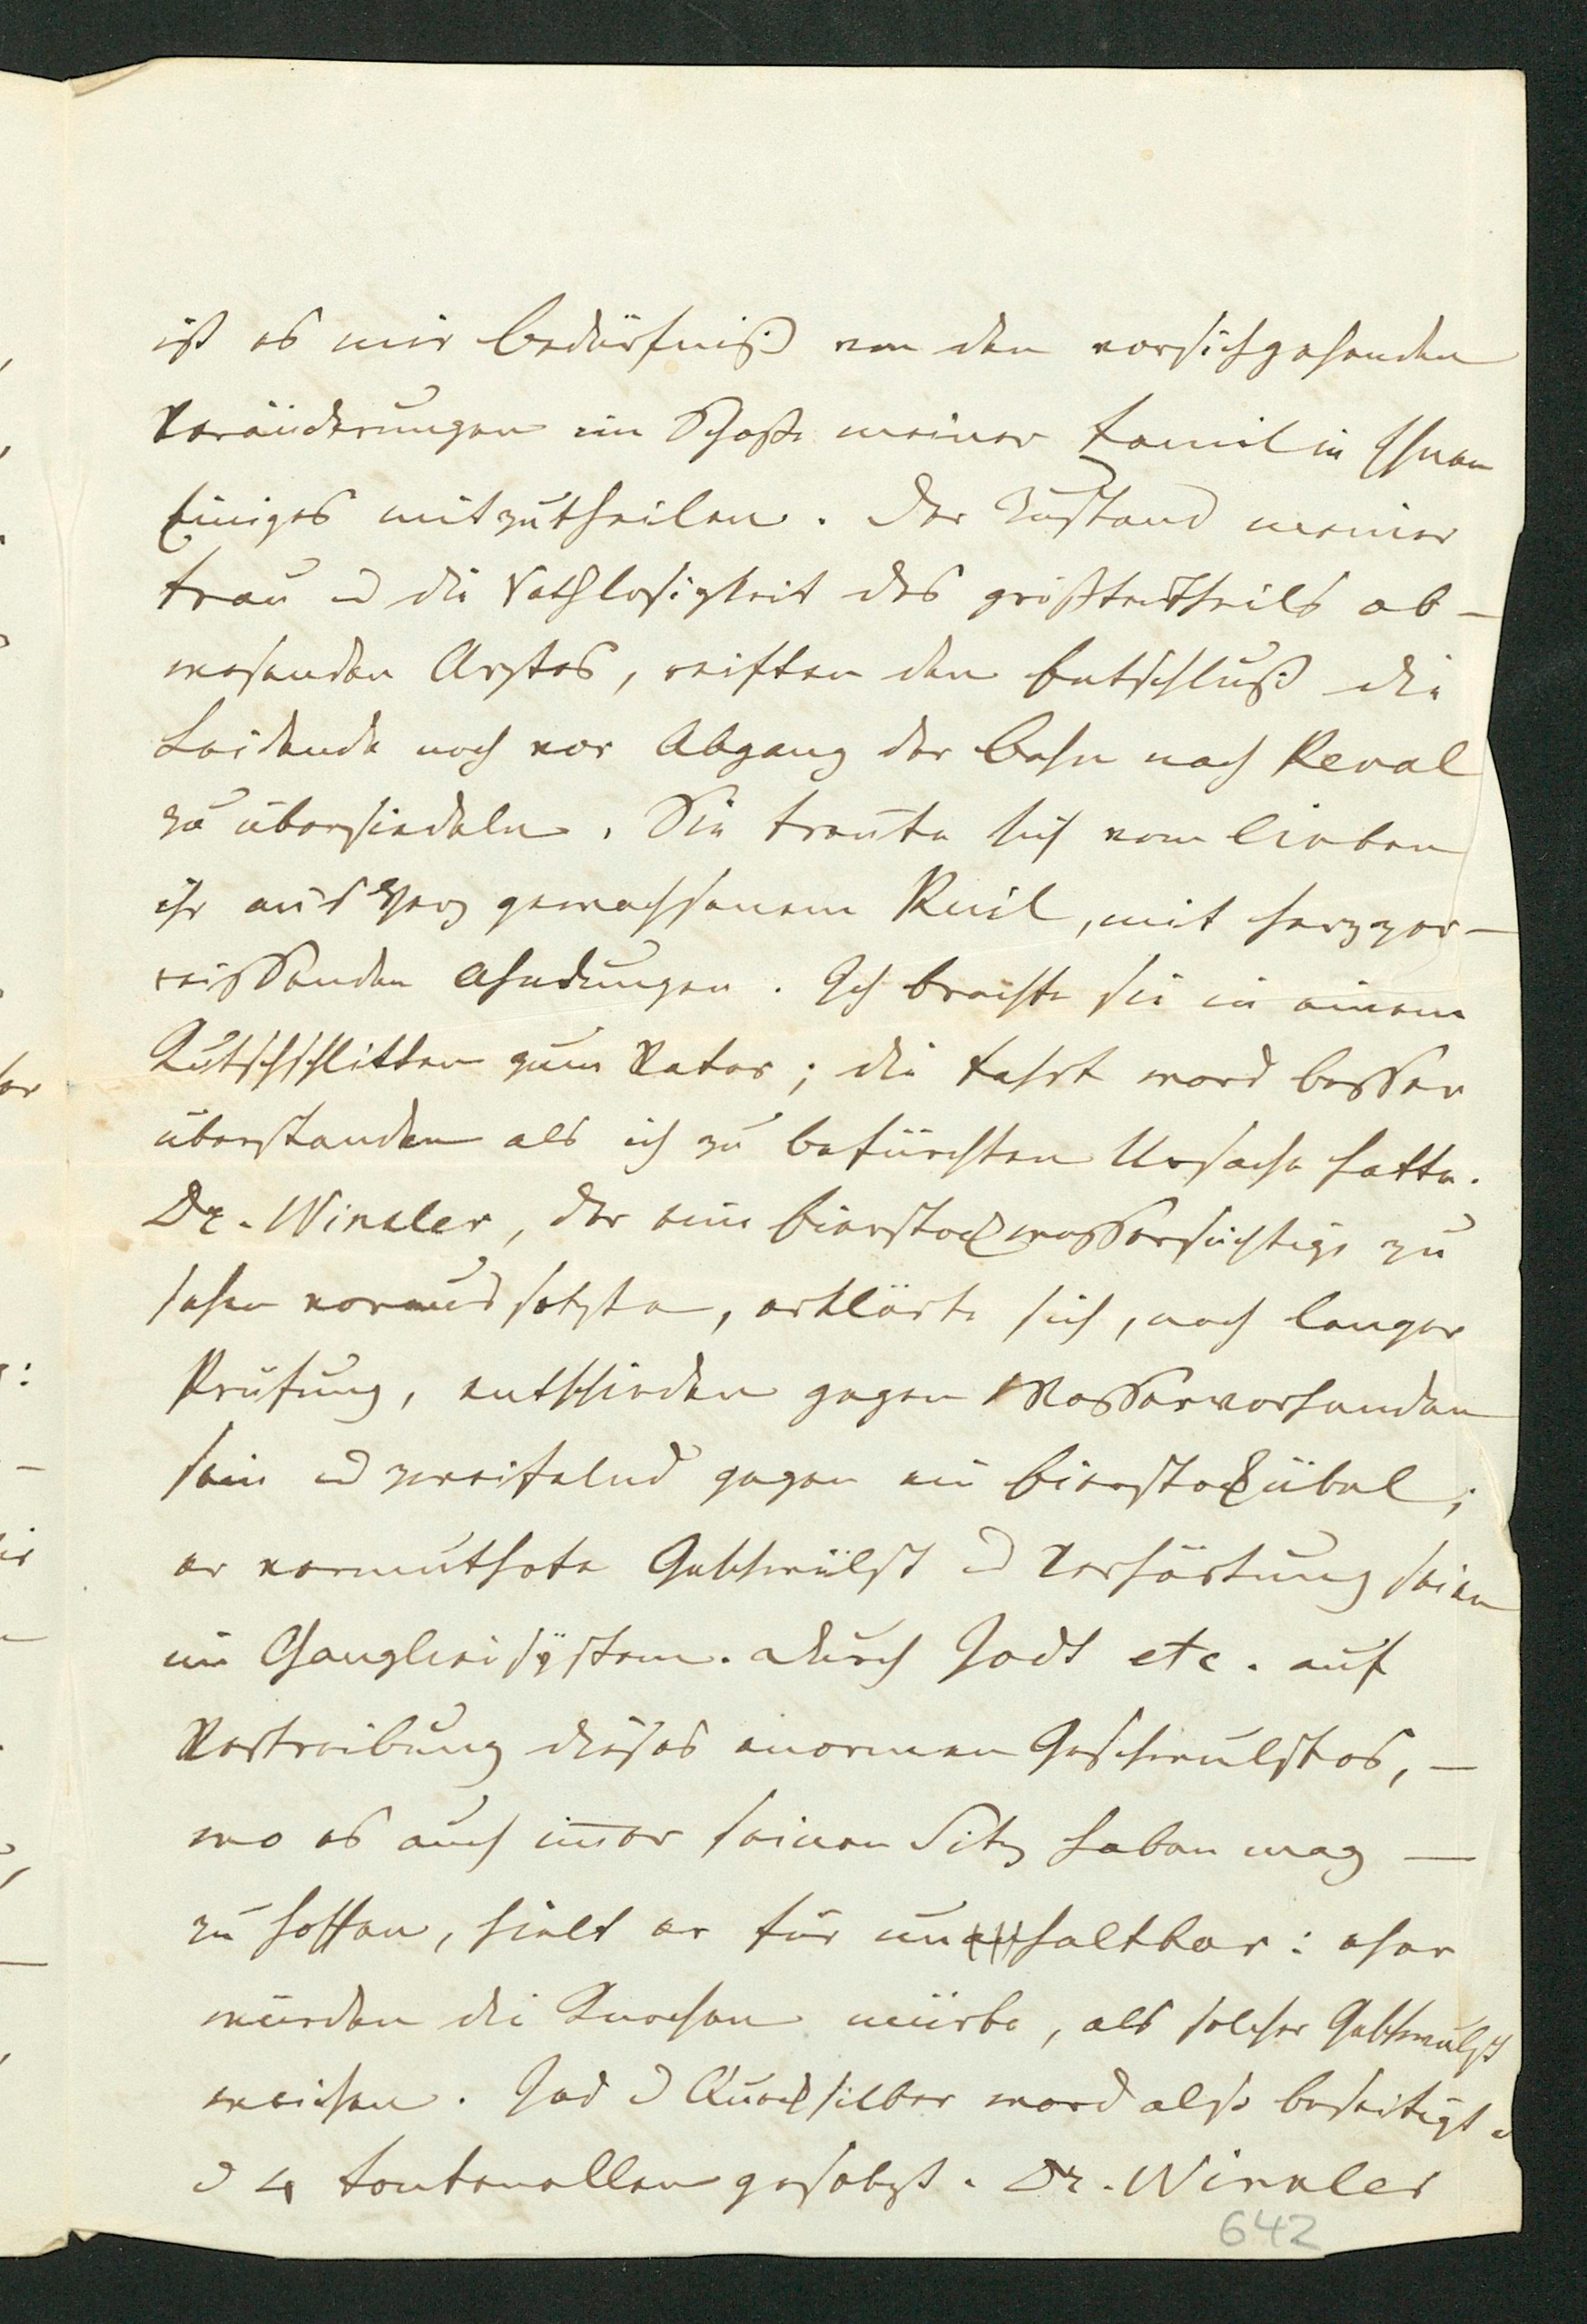 ist es mir Bedürfniß von den vorsichgehenden
Veränderungen im Schoße meiner Familie Ihnen
Einiges mitzutheilen. Der Zustand meiner
Frau u die Rathlosigkeit des größtentheils ab-
wesenden Arztes, reiften den Entschluß die
Leidende noch vor Abgang der Bahn nach Reval
zu übersiedeln. Sie trennte sich vom lieben
ihr ans Herz gewachsenem Kuil, mit herzzer-
reißenden Ahndungen. Ich brachte sie in einem
Kutschschlitten zum Vater; die Fahrt ward besser
überstanden als ich zu befürchten Ursache hatte.
Dr. Winkler, der eine Eierstockwassersüchtige zu
sehen voraussetzte, erklärte sich, nach langer
Prüfung, entschieden gegen Wasservorhanden
sein u zweifelnd gegen ein Eierstockübel;
er vermuthete Geschwülst u Verhärtung seien
im Gangliensÿstem. Durch Jodt etc. auf
Vertreibung dieses enormen Geschwulstes, —
wo es auch im̅er seinen Sitz haben mag —
zu hoffen, hielt er für unhaltbar: eher
würden die Knochen mürbe, als solcher Geschwulst
weichen. Jod u Quecksilber ward also beseitigt
u 4 Fontenellen gesetzt. Dr. Winkler
642